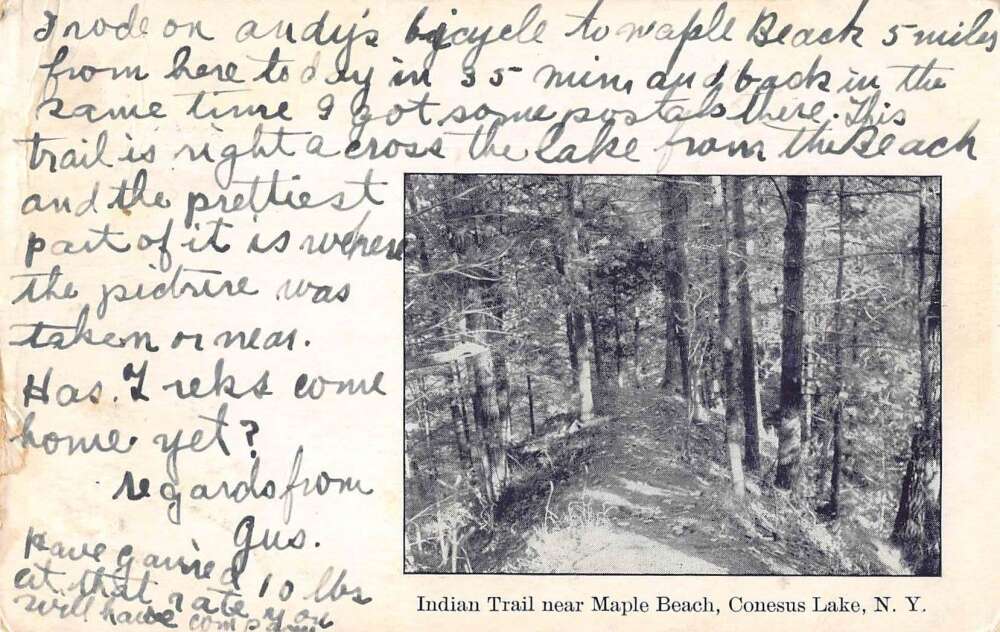 I rode on andy's bycycle to maple Beach 5 miles
from here to day in 35 min, and back in the
same time I got some postals there. This
trail is right across the lake from the Beach
and the prettiest
part of it is where
the picture was
taken or near.
Has. come
home yet?
regards from
Gus.
Have gained 10 lbs
at that rate you
will have company
Indian Trail near Maple Beach, Conesus Lake, N. Y.